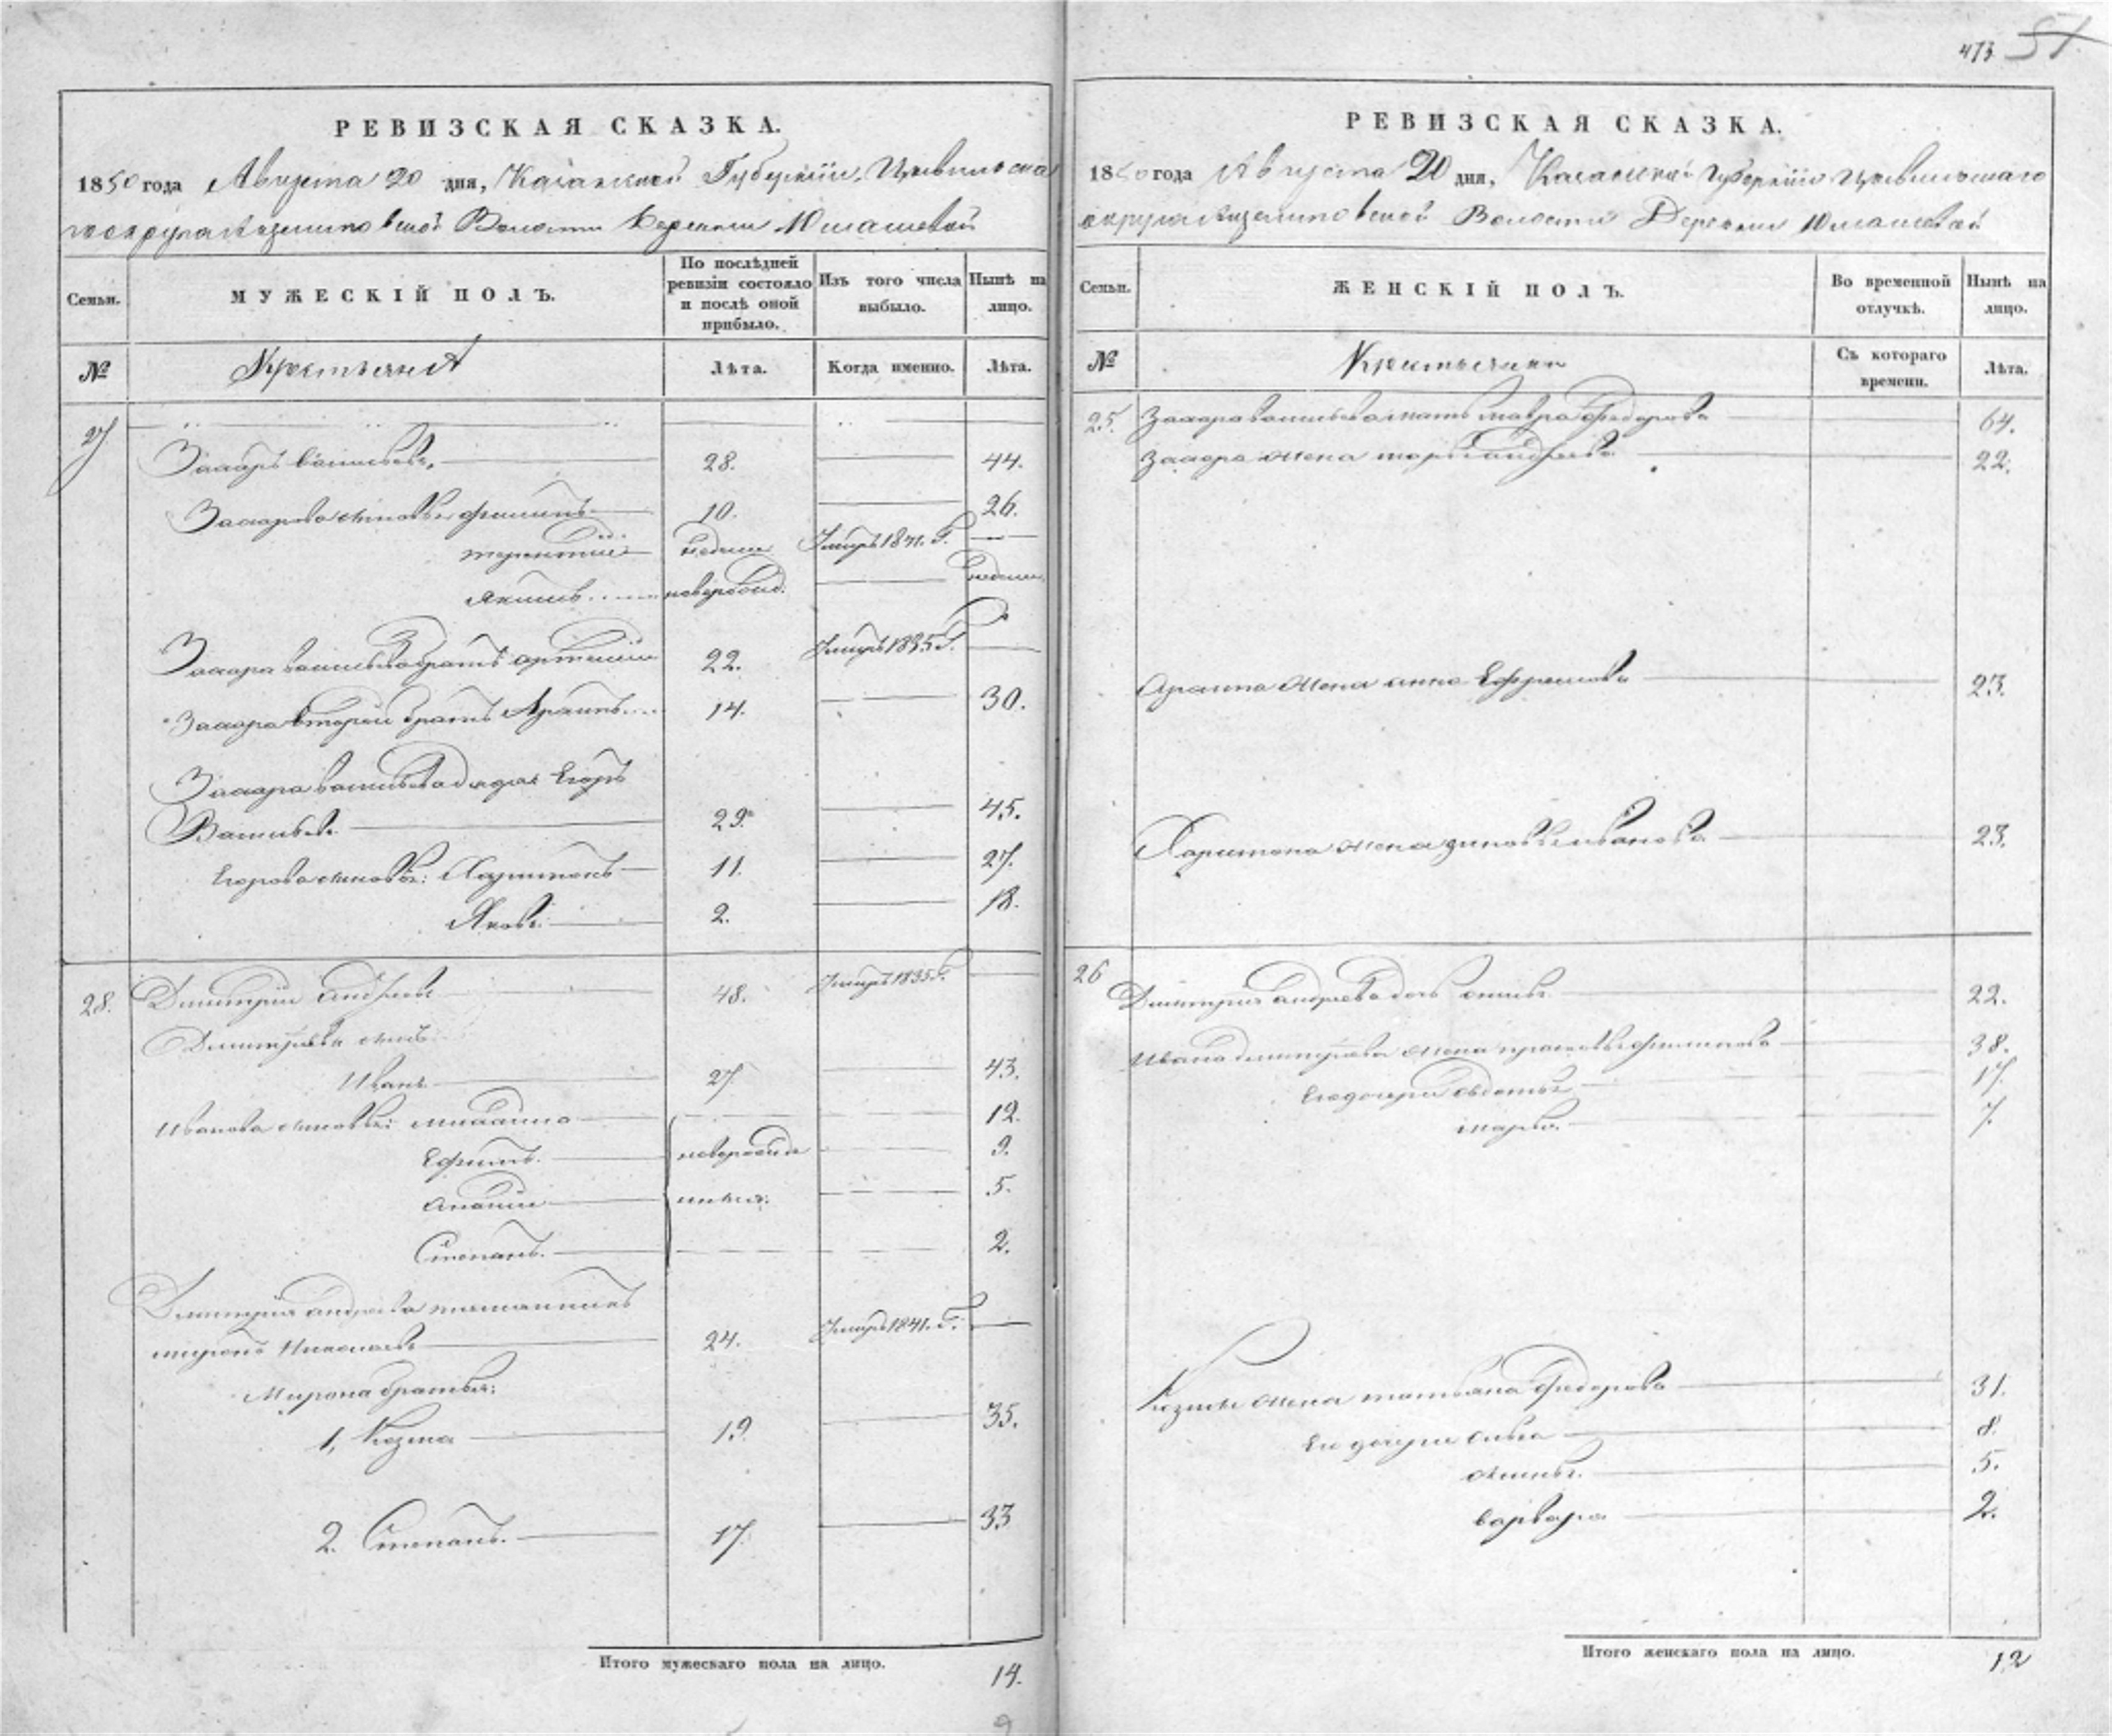 473. 51.
РЕВИЗСКАЯ СКАЗКА.
1850 года Августа 20 дня, Казанской Губерніи, Цывильска
го округа Волости Деревни Юмашевой
Семьи. МУЖЕСКІЙ ПОЛЪ. По послѣдней ревизіи состояло и послѣ оной прибыло. Изъ того числа выбыло. Нынѣ на лицо.
№ Крестьяне Лѣта. Когда именно. Лѣта.
27
Захаръ Васильевъ 28. 44.
Захарова сыновья Филипъ 10. 26.
терентій недели Умеръ 1841. Г.
Якимъ новорожд. недели
Захара Васильева братъ артемій 22. Умеръ 1835 Г.
Захара второй братъ 14. 30.
Захара васильева дядя Егоръ
Васильевъ 29. 45.
Егорова сыновья: Харитонъ 11. 27.
Яковъ 2. 18.
28. Дмитрій андреевъ 48. Умеръ 1835 Г.
Дмитріевъ сынъ
Иванъ 27 43.
Иванова сыновья: михайло 12.
Ефимъ новорожде 9.
ананій нныя. 5.
Степанъ. 2.
Дмитрія андреева племянникъ
миронъ Николаевъ 24. Умеръ 1841. Г.
Мирона братья:
1, Козма 19. 35.
2. Степанъ. 17. 33
Итого мужескаго пола на лицо. 14.
РЕВИЗСКАЯ СКАЗКА.
1850 года Августа 20 дня, Казанской Губерніи Цывильскаго
округа Волости Деревни Юмашевой
Семьи. ЖЕНСКІЙ ПОЛЪ. Во временной отлучкѣ. Нынѣ на лицо.
№ Крестьянки Съ котораго времени. Лѣта.
25. Захара васильева мать мавра Федорова 64.
Захара жена марья андреева 22.
жена анна Ефремова 23.
Харитона жена зиновья иванова 23.
26 Дмитрія андреева дочь 22.
Ивана дмитріева жена прасковья филипова 38.
Его дочери авдотья 17.
марья 7.
Козмы жена татьяна Федорова 31.
Его дочери 8.
5.
варвара 2.
Итого женскаго пола на лицо. 12